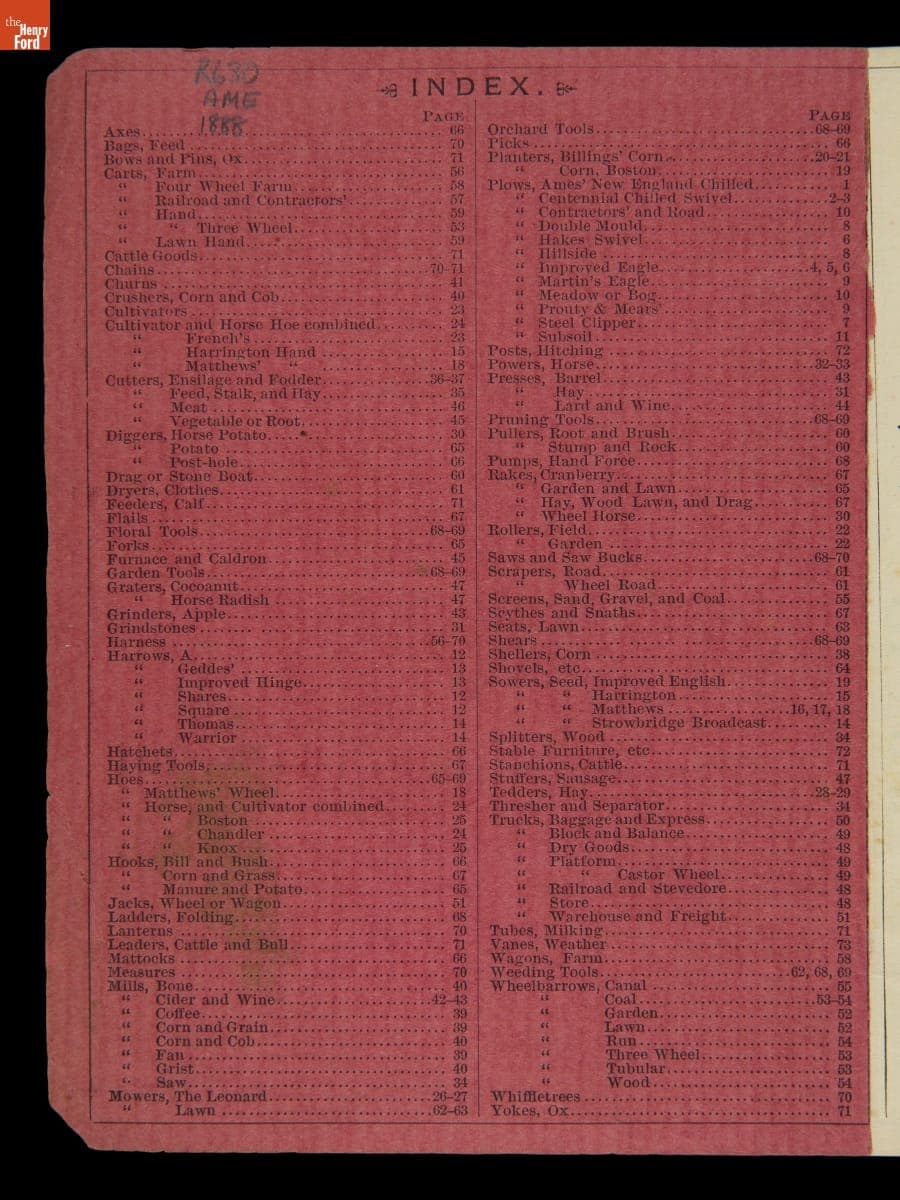 the
Henry
Ford
R630
AME
1888
INDEX.
PAGE
Axes 66
Bags, Feed 70
Bows and Pins, Ox 71
Carts, Farm 56
" Four Wheel Farm 58
" Railroad and Contractors' 57
" Hand 59
" " Three Wheel 53
" Lawn Hand 59
Cattle Goods 71
Chains 70-71
Churns 41
Crushers, Corn and Cob 40
Cultivators 23
Cultivator and Horse Hoe combined 24
" French's 23
" Harrington Hand 15
" Matthews' " 18
Cutters, Ensilage and Fodder 36-37
" Feed, Stalk, and Hay 35
" Meat 46
" Vegetable or Root 45
Diggers, Horse Potato 30
" Potato 65
" Post-hole 66
Drag or Stone Boat 60
Dryers, Clothes 61
Feeders, Calf 71
Flails 67
Floral Tools 68-69
Forks 65
Furnace and Caldron 45
Garden Tools 68-69
Graters, Cocoanut 47
" Horse Radish 47
Grinders, Apple 43
Grindstones 31
Harness 56-70
Harrows, A 12
" Geddes' 13
" Improved Hinge 13
" Shares 12
" Square 12
" Thomas 14
" Warrior 14
Hatchets 66
Haying Tools 67
Hoes 65-69
" Matthews' Wheel 18
" Horse, and Cultivator combined 24
" " Boston 25
" " Chandler 24
" " Knox 25
Hooks, Bill and Bush 66
" Corn and Grass 67
" Manure and Potato 65
Jacks, Wheel or Wagon 51
Ladders, Folding 68
Lanterns 70
Leaders, Cattle and Bull 71
Mattocks 66
Measures 70
Mills, Bone 40
" Cider and Wine 42-43
" Coffee 39
" Corn and Grain 39
" Corn and Cob 40
" Fan 39
" Grist 40
" Saw 34
Mowers, The Leonard 26-27
" Lawn 62-63
PAGE
Orchard Tools 68-69
Picks 66
Planters, Billings' Corn 20-21
" Corn, Boston 19
Plows, Ames' New England Chilled 1
" Centennial Chilled Swivel 2-3
" Contractors' and Road 10
" Double Mould 8
" Hakes Swivel 6
" Hillside 8
" Improved Eagle 4, 5, 6
" Martin's Eagle 9
" Meadow or Bog 10
" Prouty & Mears' 9
" Steel Clipper 7
" Subsoil 11
Posts, Hitching 72
Powers, Horse 32-33
Presses, Barrel 43
" Hay 31
" Lard and Wine 44
Pruning Tools 68-69
Pullers, Root and Brush 60
" Stump and Rock 60
Pumps, Hand Force 68
Rakes, Cranberry 67
" Garden and Lawn 65
" Hay, Wood Lawn, and Drag 67
" Wheel Horse 30
Rollers, Field 22
" Garden 22
Saws and Saw Bucks 68-70
Scrapers, Road 61
" Wheel Road 61
Screens, Sand, Gravel, and Coal 55
Scythes and Snaths 67
Seats, Lawn 63
Shears 68-69
Shellers, Corn 38
Shovels, etc 64
Sowers, Seed, Improved English 19
" " Harrington 15
" " Matthews 16, 17, 18
" " Strowbridge Broadcast 14
Splitters, Wood 34
Stable Furniture, etc 72
Stanchions, Cattle 71
Stuffers, Sausage 47
Tedders, Hay 28-29
Thresher and Separator 34
Trucks, Baggage and Express 50
" Block and Balance 49
" Dry Goods 48
" Platform 49
" " Castor Wheel 49
" Railroad and Stevedore 48
" Store 48
" Warehouse and Freight 51
Tubes, Milking 71
Vanes, Weather 73
Wagons, Farm 58
Weeding Tools 62, 68, 69
Wheelbarrows, Canal 55
" Coal 53-54
" Garden 52
" Lawn 52
" Run 54
" Three Wheel 53
" Tubular 53
" Wood 54
Whiffletrees 70
Yokes, Ox 71